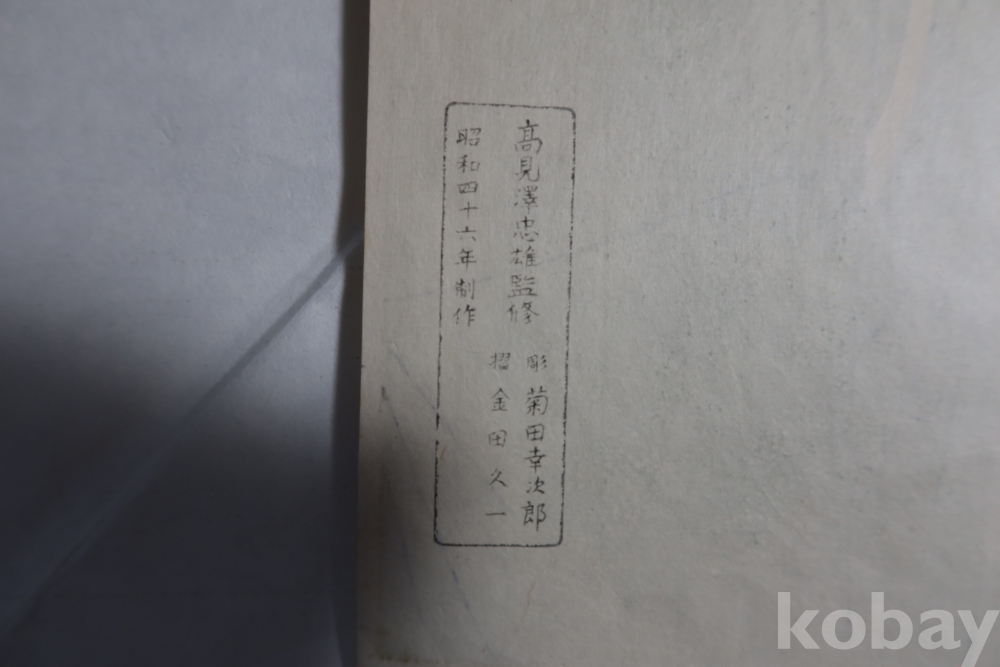 高見澤忠雄監修
彫 菊田幸次郎
摺 金田久一
昭和四十六年制作
kobay